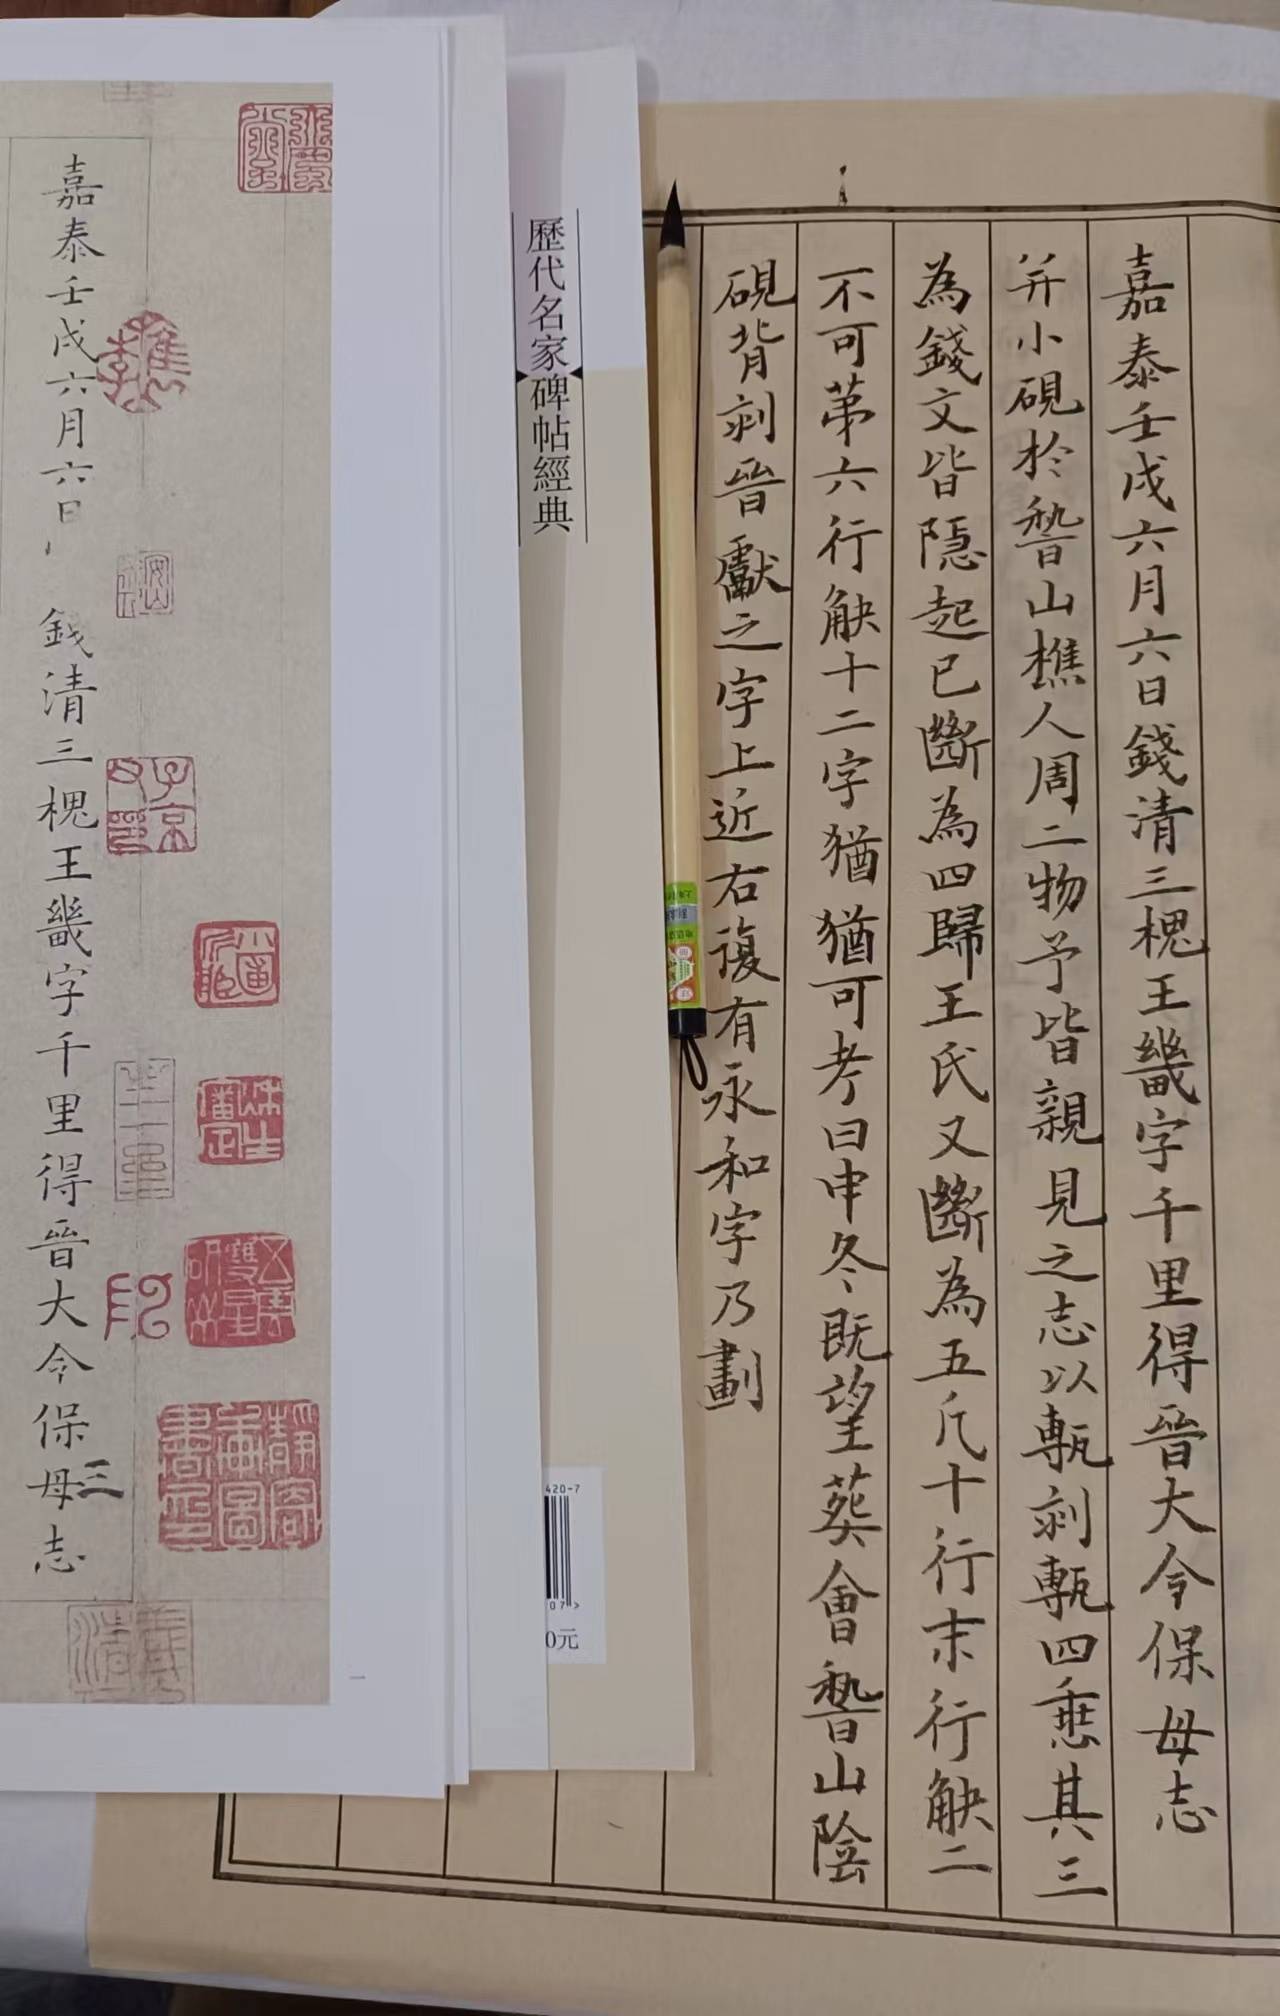 嘉泰壬戌六月六日錢清三槐王畿字千里得晉大令保母志
并小硯於嵇山樵人周二物予皆親見之志以甎刻甎四垂其三
為錢文皆隱起已斷為四歸王氏又斷為五凡十行末行缺二
不可第六行缺十二字猶猶可考曰中冬既望葬會嵇山陰
硯背刻晉獻之字上近右復有永和字乃劃
歷代名家碑帖經典
420-7
07>
0元
嘉泰壬戌六月六日
錢清三槐王畿字千里得晉大令保母志
三
一
子京